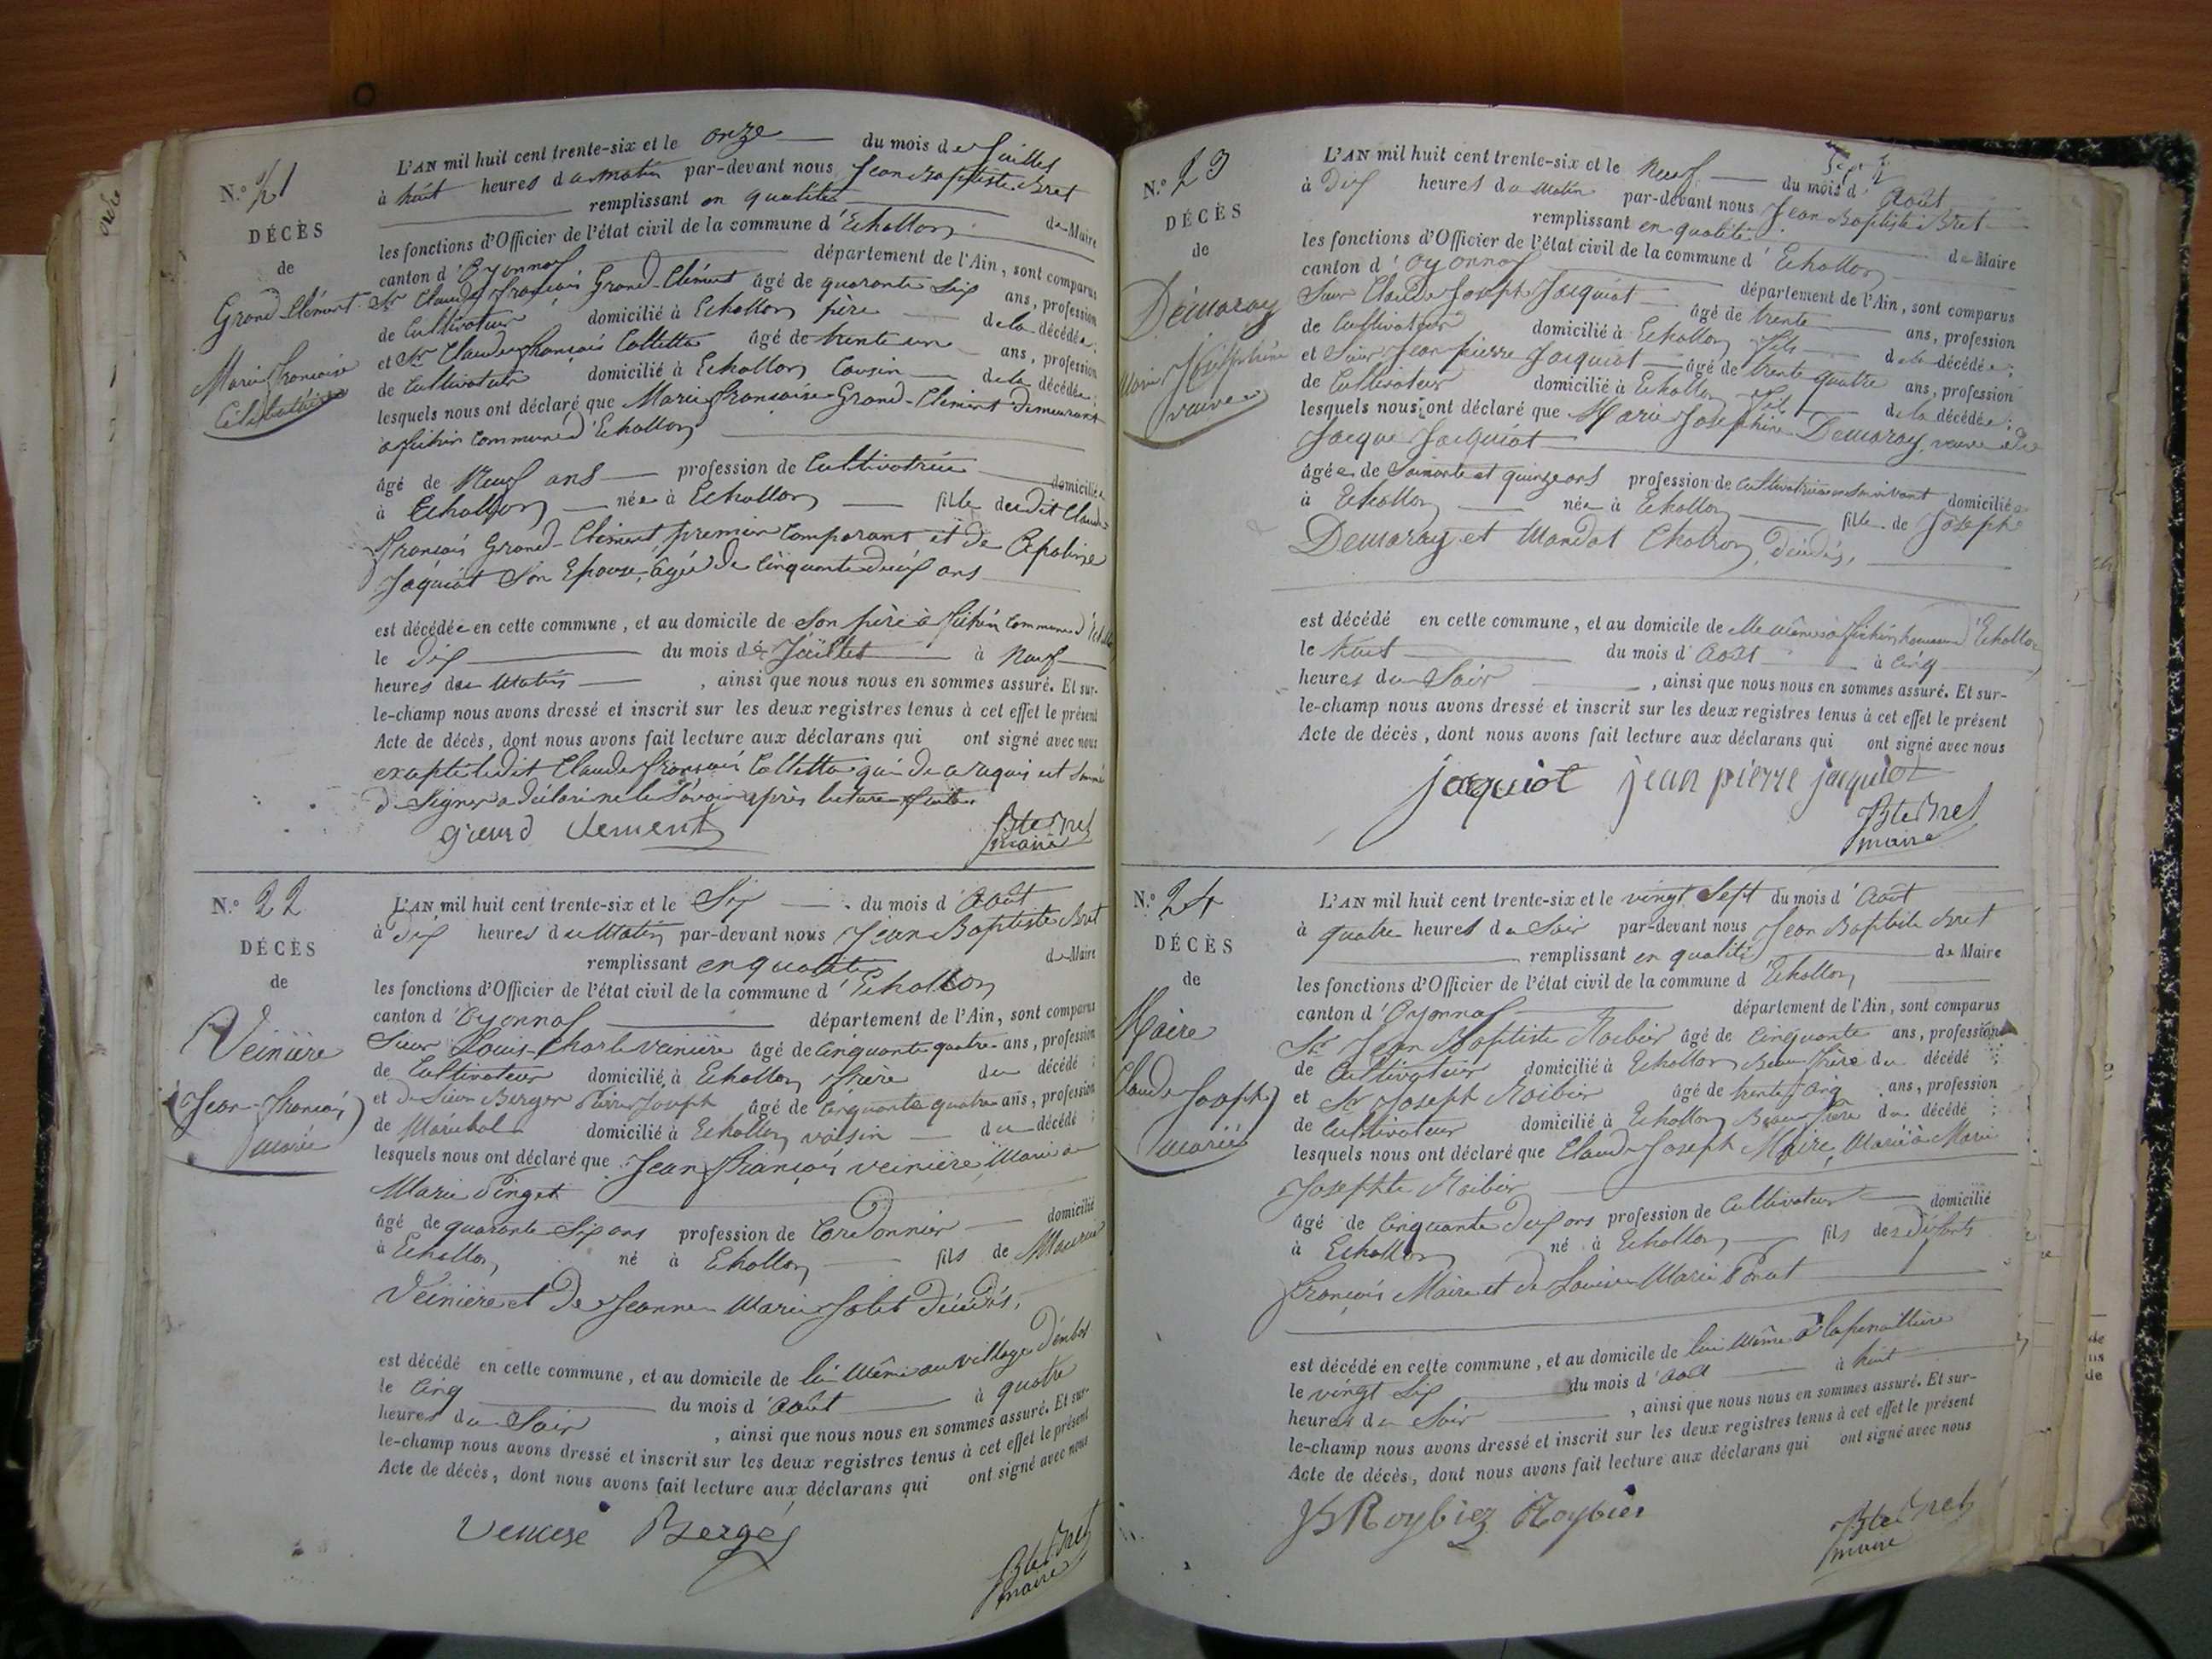 N.º 21
DÉCÈS
de
Grand-Clément
Marie Françoise
Célibataire
L'AN mil huit cent trente-six et le onze du mois de Juillet
à huit heures du matin par-devant nous Jean Baptiste Bret
remplissant en qualité de Maire
les fonctions d'Officier de l'état civil de la commune d'Echallon
canton d'Oyonnax département de l'Ain, sont comparus
Sr Claude François Grand-Clément âgé de quarante six ans, profession
de Cultivateur domicilié à Echallon père de la décédée;
et Sr Claude François Collettaz âgé de trente un ans, profession
de Cultivateur domicilié à Echallon Cousin de la décédée;
lesquels nous ont déclaré que Marie Françoise Grand-Clément demeurant
commune d'Echallon
âgé de Neuf ans profession de Cultivatrice domiciliée
à Echallon née à Echallon fille du dit Claude
François Grand-Clément premier Comparant et de
Jaquiot Son Epouse, âgée de Cinquante deux ans
est décédée en cette commune, et au domicile de Son père à commune d'Echallon
le Dix du mois de Juillet à Neuf
heures du Matin, ainsi que nous nous en sommes assuré. Et sur-
le-champ nous avons dressé et inscrit sur les deux registres tenus à cet effet le présent
Acte de décès, dont nous avons fait lecture aux déclarans qui ont signé avec nous
excepté ledit Claude François qui de ce requis et
de Signer a déclaré ne le Savoir après lecture faite
Grand Clement
Bte Bret
maire
N.º 22
DÉCÈS
de
Veinière
Jean-François
marié
L'AN mil huit cent trente-six et le Six du mois d'Août
à Dix heures du Matin par-devant nous Jean Baptiste Bret
remplissant en qualité de Maire
les fonctions d'Officier de l'état civil de la commune d'Echallon
canton d'Oyonnax département de l'Ain, sont comparus
Sieur Louis-Charle Veinière âgé de Cinquante quatre ans, profession
de Cultivateur domicilié à Echallon frère du décédé;
et du Sieur Berger Pierre Joseph âgé de Cinquante quatre ans, profession
de Maréchal domicilié à Echallon voisin du décédé;
lesquels nous ont déclaré que Jean François Veinière, Marié a
Marie Pinget
âgé de quarante Six ans profession de Cordonnier domicilié
à Echallon né à Echallon fils de
Veinière et de Jeanne Marie décédés,
est décédé en cette commune, et au domicile de lui Même au village
le Cinq du mois d'Août à quatre
heures du Soir, ainsi que nous nous en sommes assuré. Et sur-
le-champ nous avons dressé et inscrit sur les deux registres tenus à cet effet le présent
Acte de décès, dont nous avons fait lecture aux déclarans qui ont signé avec nous
Berger
Bte Bret
maire
N.º 23
DÉCÈS
de
Démaray
Marie Joséphine
veuve
L'AN mil huit cent trente-six et le Neuf du mois d'Août
à Dix heures du Matin par-devant nous Jean Baptiste Bret
remplissant en qualité de Maire
les fonctions d'Officier de l'état civil de la commune d'Echallon
canton d'Oyonnax département de l'Ain, sont comparus
Sieur Claude Joseph Jacquiot âgé de trente ans, profession
de Cultivateur domicilié à Echallon fils de la décédée;
et Sieur Jean pierre Jacquiot âgé de trente quatre ans, profession
de Cultivateur domicilié à Echallon fils de la décédée;
lesquels nous ont déclaré que Marie Joséphine Demaray, veuve de
Jacque Jacquiot
âgée de Soixante et quinze ans profession de Cultivatrice domiciliée
à Echallon née à Echallon fille de Joseph
Demaray et Chatron, décédés,
est décédé en cette commune, et au domicile de d'Echallon
le huit du mois d'Août à Cinq
heures du Soir, ainsi que nous nous en sommes assuré. Et sur-
le-champ nous avons dressé et inscrit sur les deux registres tenus à cet effet le présent
Acte de décès, dont nous avons fait lecture aux déclarans qui ont signé avec nous
jacquiot jean pierre jacquiot
Bte Bret
maire
N.º 24
DÉCÈS
de
Maire
Claude Joseph
marié
L'AN mil huit cent trente-six et le vingt Sept du mois d'Août
à quatre heures du Soir par-devant nous Jean Baptiste Bret
remplissant en qualité de Maire
les fonctions d'Officier de l'état civil de la commune d'Echallon
canton d'Oyonnax département de l'Ain, sont comparus
Sr Jean Baptiste Roibier âgé de Cinquante ans, profession
de Cultivateur domicilié à Echallon Beau frère du décédé;
et Sr Joseph Roibier âgé de trente Cinq ans, profession
de Cultivateur domicilié à Echallon Beau frère du décédé;
lesquels nous ont déclaré que Claude Joseph Maire, Marié à Marie
Josephte Roibier
âgé de Cinquante Deux ans profession de Cultivateur domicilié
à Echallon né à Echallon fils des Défunts
François Maire et de Louise Marie
est décédé en cette commune, et au domicile de lui Même à
le vingt Six du mois d'Août à huit
heures du Soir, ainsi que nous nous en sommes assuré. Et sur-
le-champ nous avons dressé et inscrit sur les deux registres tenus à cet effet le présent
Acte de décès, dont nous avons fait lecture aux déclarans qui ont signé avec nous
JB Roybier Roybier
Bte Bret
maire